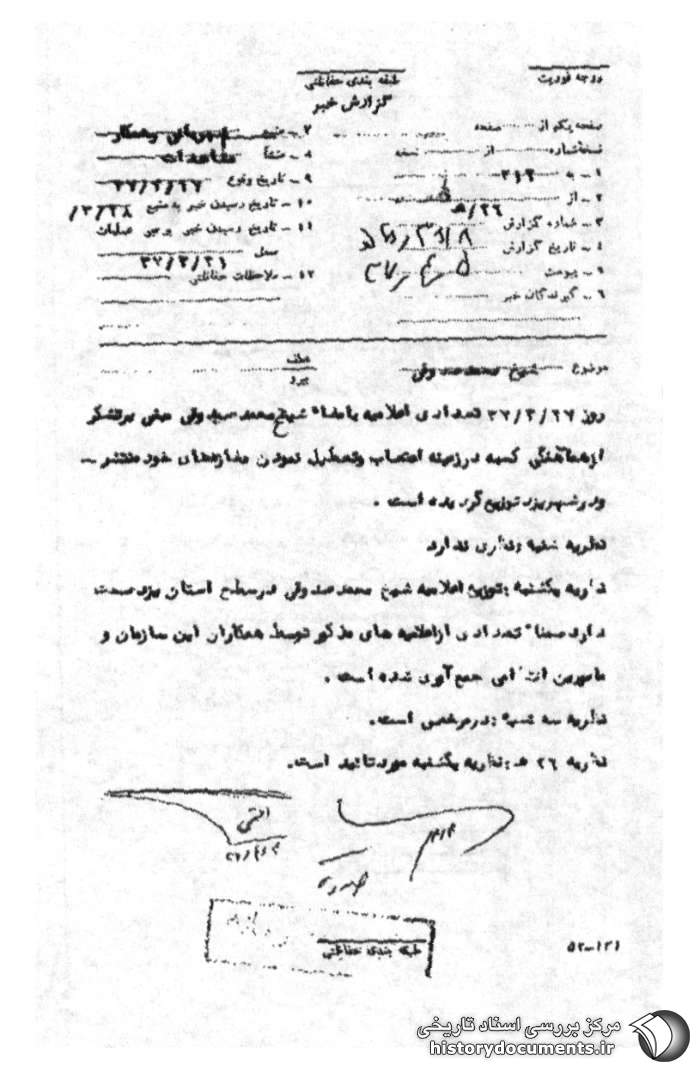 درجه فوریت
طبقه بندی حفاظتی
گزارش خبر
صفحه یکم از صفحه
نسخه شماره از نسخه
۱ ـ به ۳۱۲
۲ ـ از ۲۶/ه
۳ ـ شماره گزارش
۴ ـ تاریخ گزارش
۵ ـ پیوست
۶ ـ گیرندگان خبر
۷ ـ منبع و همکار
۸ ـ منشأ مشاهدات
۹ ـ تاریخ وقوع ۳۷/۳/۲۷
۱۰ ـ تاریخ رسیدن خبر به منبع ۳/۲۸/
۱۱ ـ تاریخ رسیدن خبر به عملیات
محل ۳۷/۳/۳۱
۱۲ ـ ملاحظات حفاظتی
موضوع شیخ محمد صدوقی
عطف
پیرو
روز ۳۷/۳/۲۷ تعدادی اعلامیه بامضاء شیخ محمد صدوقی مبنی بر تشکر
از هماهنگی کسبه در زمینه اعتصاب و تعطیل نمودن مغازه‌های خود منتشر ـ
و در شهر یزد توزیع گردیده است .
نظریه شنبه : نظری ندارد
نظریه یکشنبه : توزیع اعلامیه شیخ محمد صدوقی در سطح استان یزد صحت
دارد ضمناً تعدادی از اعلامیه های مذکور توسط همکاران این سازمان و
مامورین انتظامی جمع آوری شده است .
نظریه سه شنبه : در مرخصی است.
نظریه ۲۶ ه : نظریه یکشنبه مورد تائید است.
۴/۴
طبقه بندی حفاظتی
۵۲-۱۲۱
مرکز بررسی اسناد تاریخی
historydocuments.ir